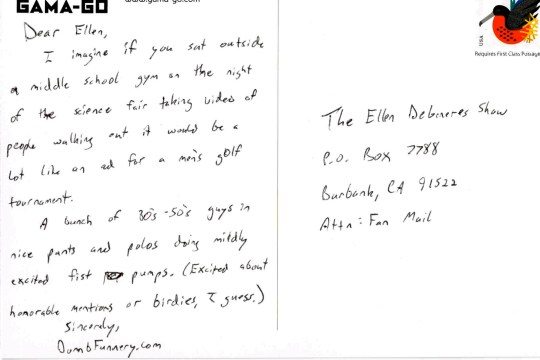 GAMA-GO www.gama-go.com
Dear Ellen,
I imagine if you sat outside
a middle school gym on the night
of the science fair taking video of
people walking out it would be a
lot like an ad for a men's golf
tournament.
A bunch of 30's-50's guys in
nice pants and polos doing mildly
excited fist pumps. (Excited about
honorable mentions or birdies, I guess.)
Sincerely,
DumbFunnery.com
USA
Requires First Class Postage
The Ellen Degeneres Show
P.O. Box 7788
Burbank, CA 91522
Attn: Fan Mail